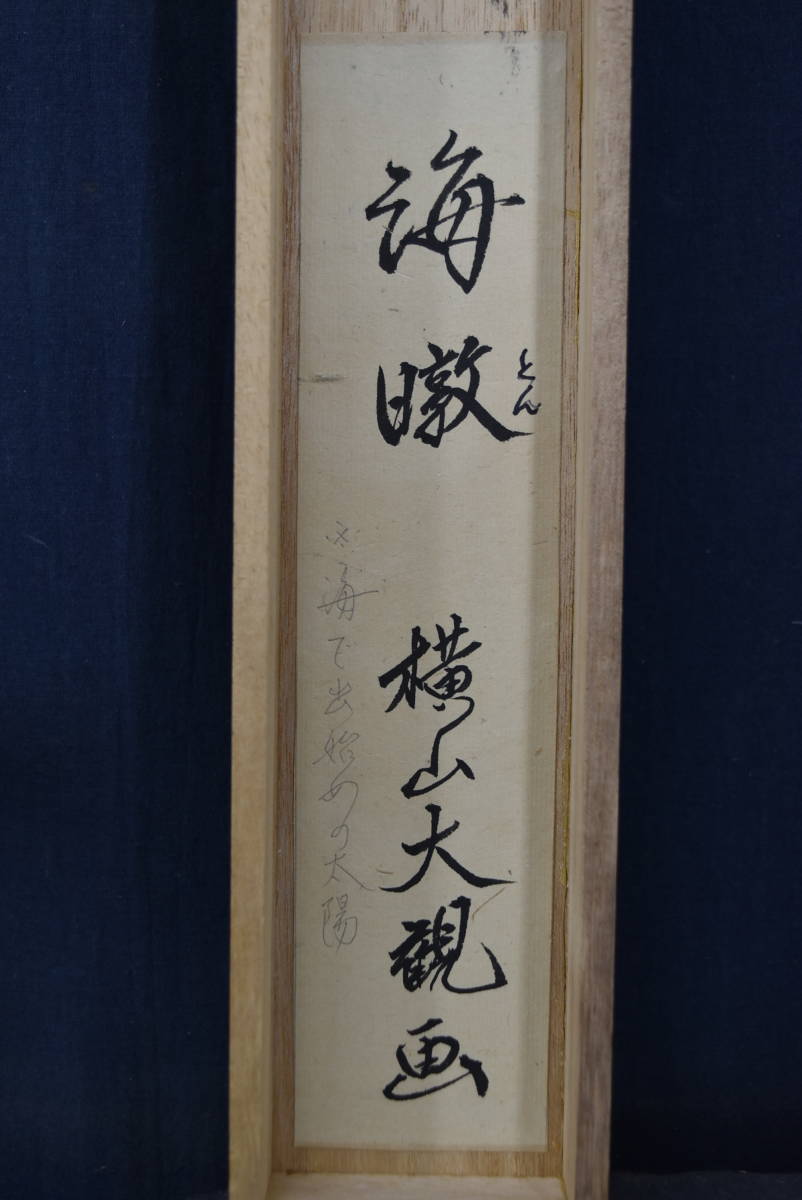 海暾
とん
横山大観画
※海で出始めの太陽